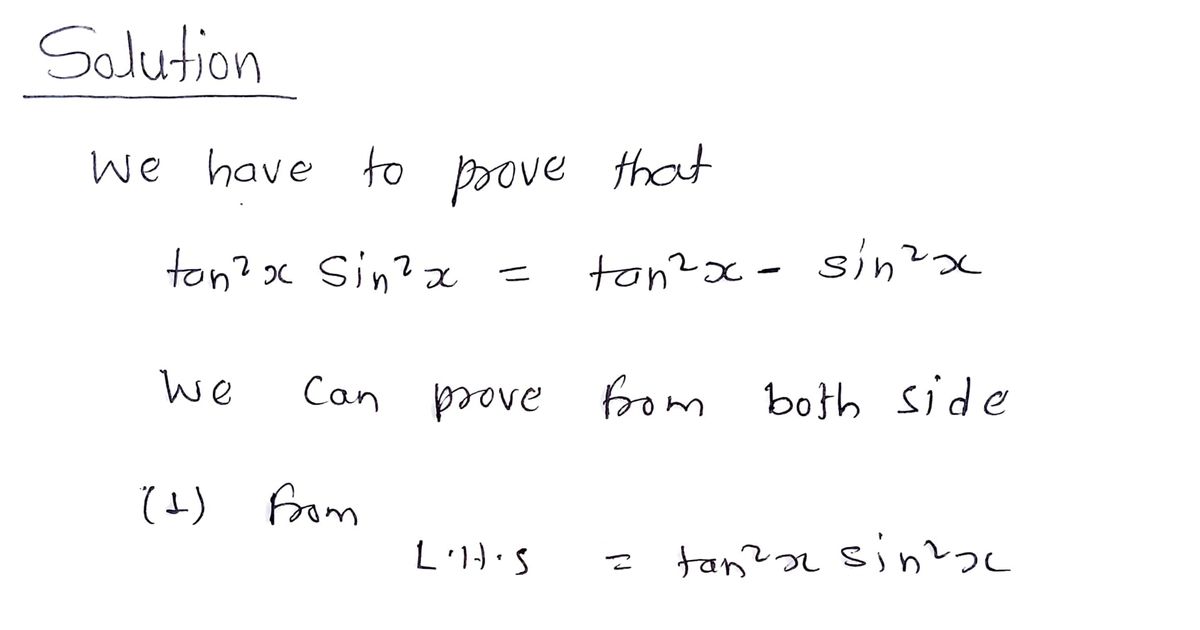 Solution
We have to prove that
tan²x Sin²x = tan²x - sin²x
We Can prove from both side
(1) from
L.H.S = tan²x sin²x